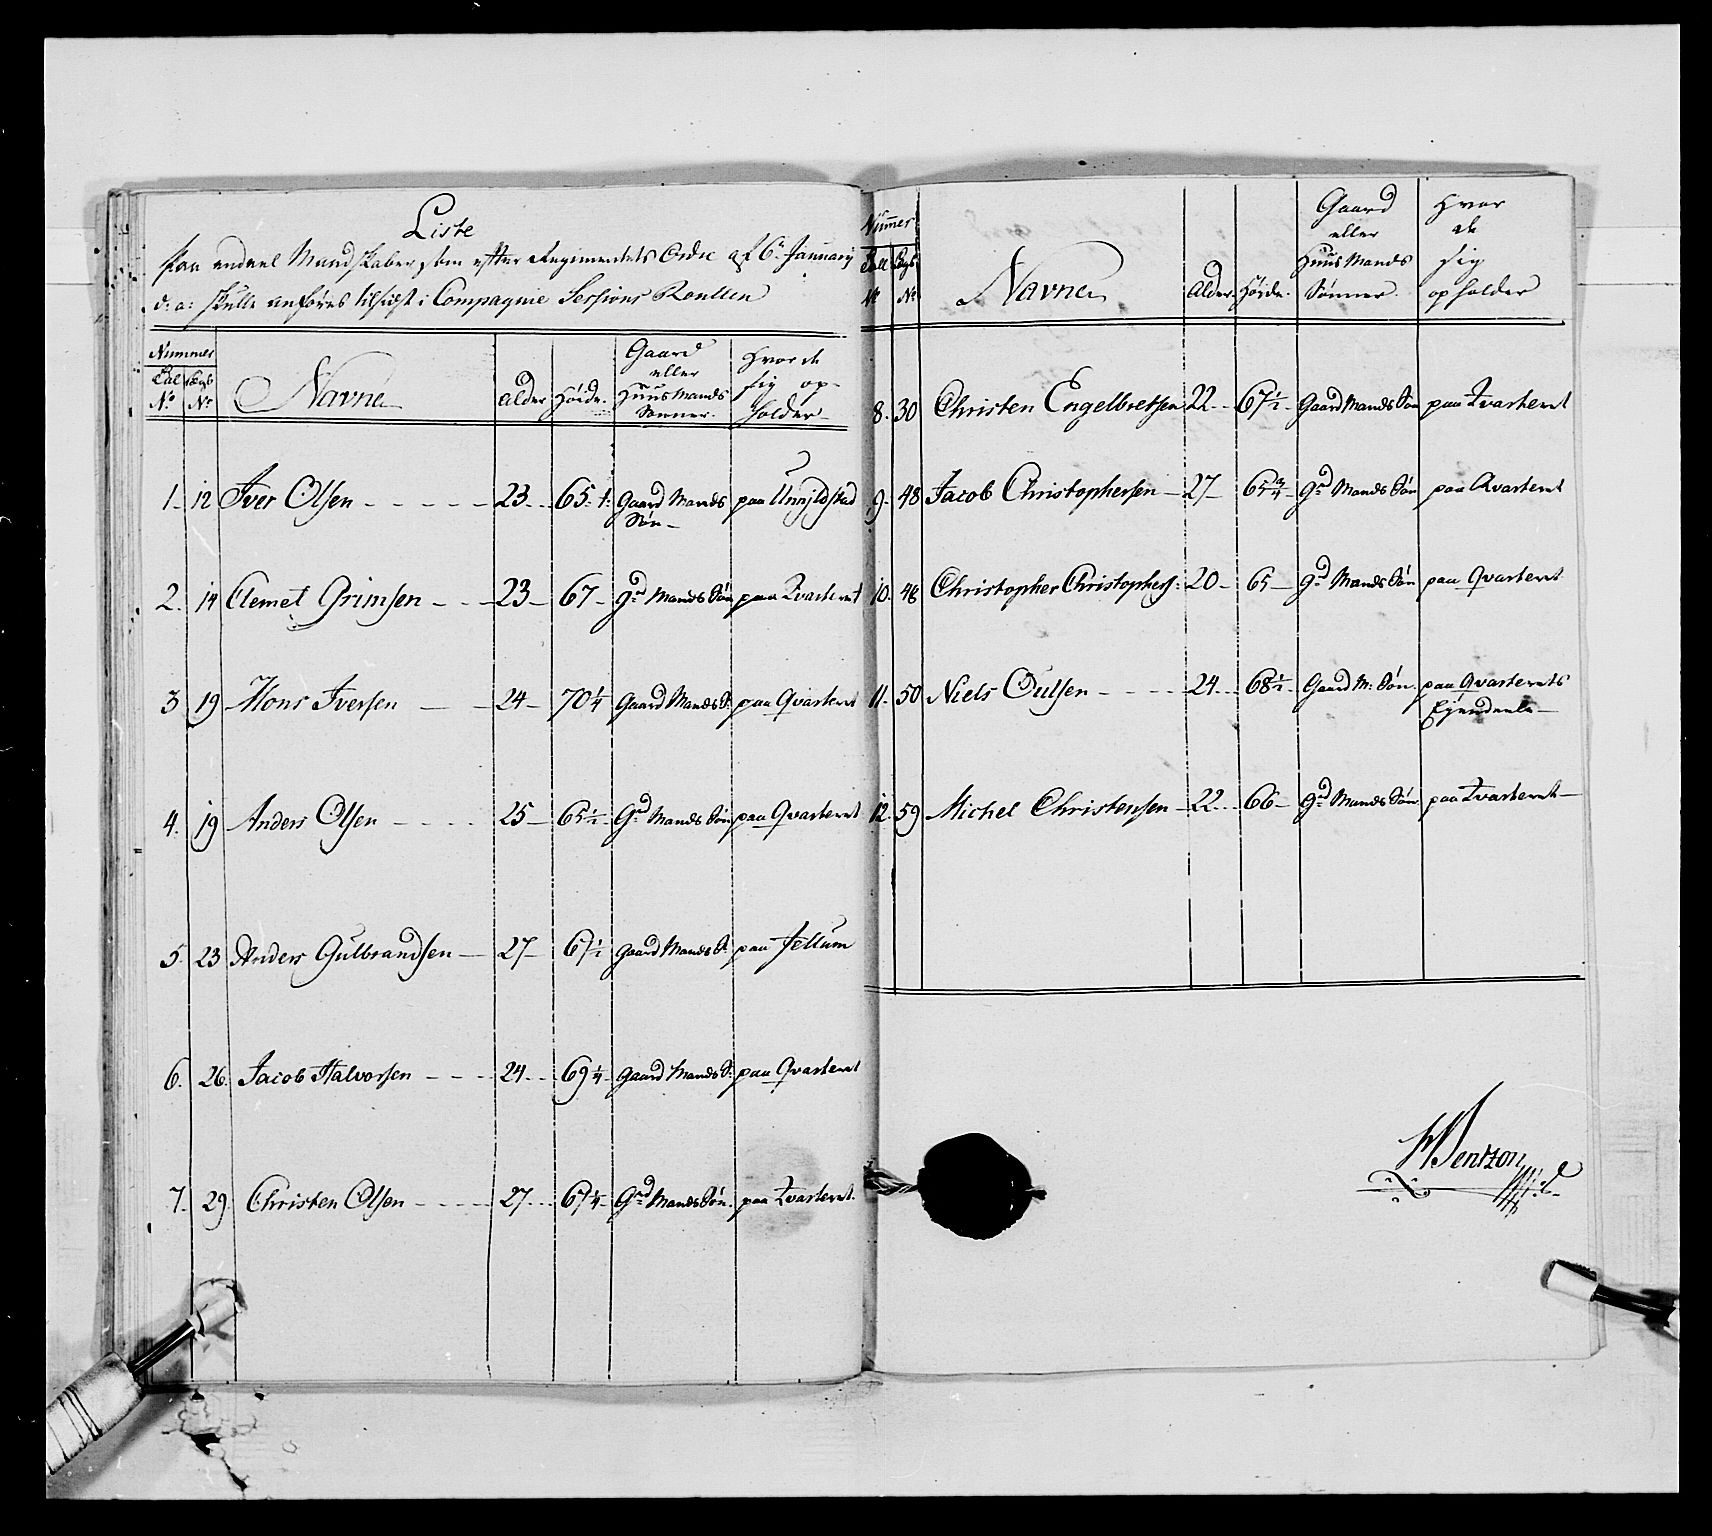 Liste
Paa endeel Mandskaber som efter Regimentets Ordre af 6te January
d: a: skulle anføres tilsidst i Compagnie Sessions Roullen
Nummer
Tal No
Lægs No
Navne
Alder
Høide
Gaard eller Huus Mands Sønner.
Hvor de sig opholder
1. 12 Iver Olsen 23 65 1: Gaard Mands Søn paa
2. 14 Clemet Grimsen 23 67 Gd Mands Søn paa Qvarteret
3 19 Mons Iversen 24 70 1/4 Gaard Mands S: paa Qvarteret
4. 19 Anders Olsen 25 65 1/2 Gd Mands Søn paa Qvarteret
5. 23 Anders Gulbrandsen 27 67 1/2 Gaard Mands S: paa Jellum
6. 26. Jacob Halvorsen 24 69 1/4 Gaard Mands S: paa Qvarteret
7. 29. Christen Olsen 27 67 1/4 Gd Mands Søn. paa Qvarteret.
Num̅er
Tall No
Lægs No
Navne
Alder.
Høide.
Gaard eller Huus Mands Sønner.
Hvor de sig opholder
8. 30 Christen Engelbretsen 22 67 1/2 Gaard Mands Søn paa Qvarteret
9. 48 Jacob Christophersen 27 65 3/4 Gd Mands Søn paa Qvarteret
10. 48 Christopher Christophers: 20 65 Gd Mands Søn paa Qvarteret
11. 50 Niels Oulsen 24 68 1/2 Gaard M: Søn paa Qvarterets
Ejendeele
12. 59 Michel Christensen 22 66 Gd Mands Søn paa Qvarteret
Bentzon